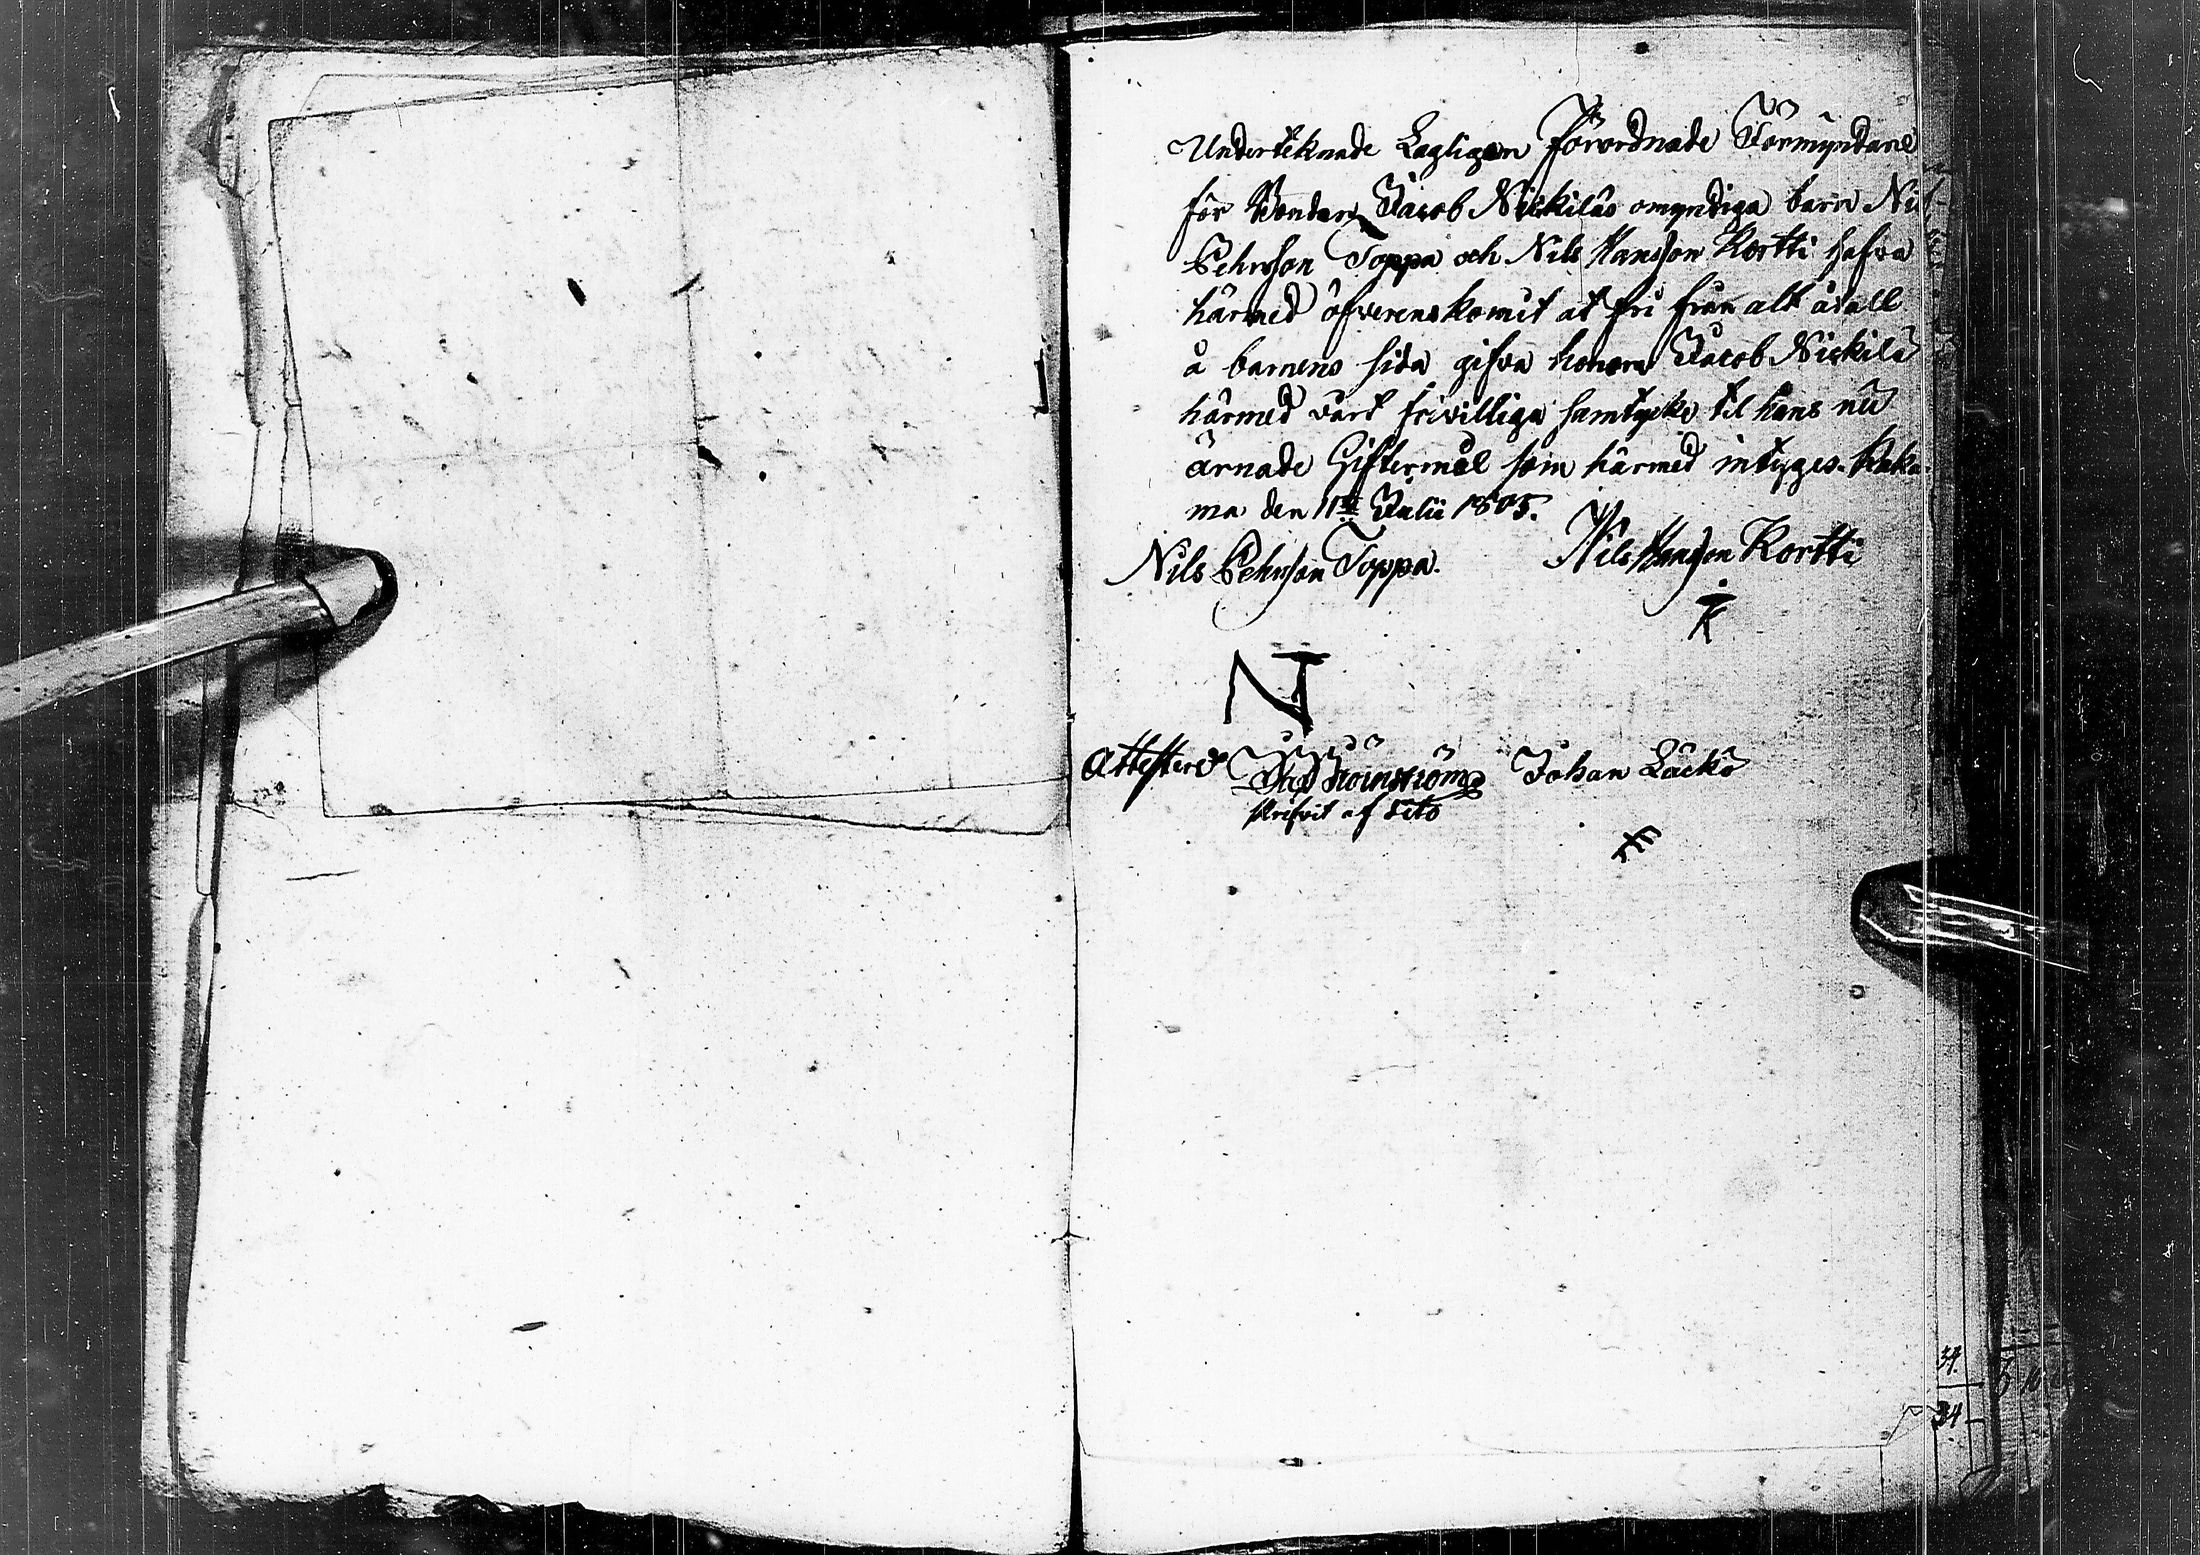 Underteknade Lagligen Förordnade Förmyndare
för Bondan Jacob Niskilas omyndiga barn Nils
Pehrsson Toppa och Nils Hansson Kortti hafva
härmed öfverenskomit at fri från alt åtall
å barnens sida gifva honom Jacob Niskila
härmed vårt frivilliga samtycke til hans nu
ärnade Giftermål som härmed intyges. Kuka-
ma den 11te Julii 1805.
Nils Pehrsson Toppa. Nils Hansson Kortti
N
Attesterat Johan Läckö
skrifvit af dito
34.
34